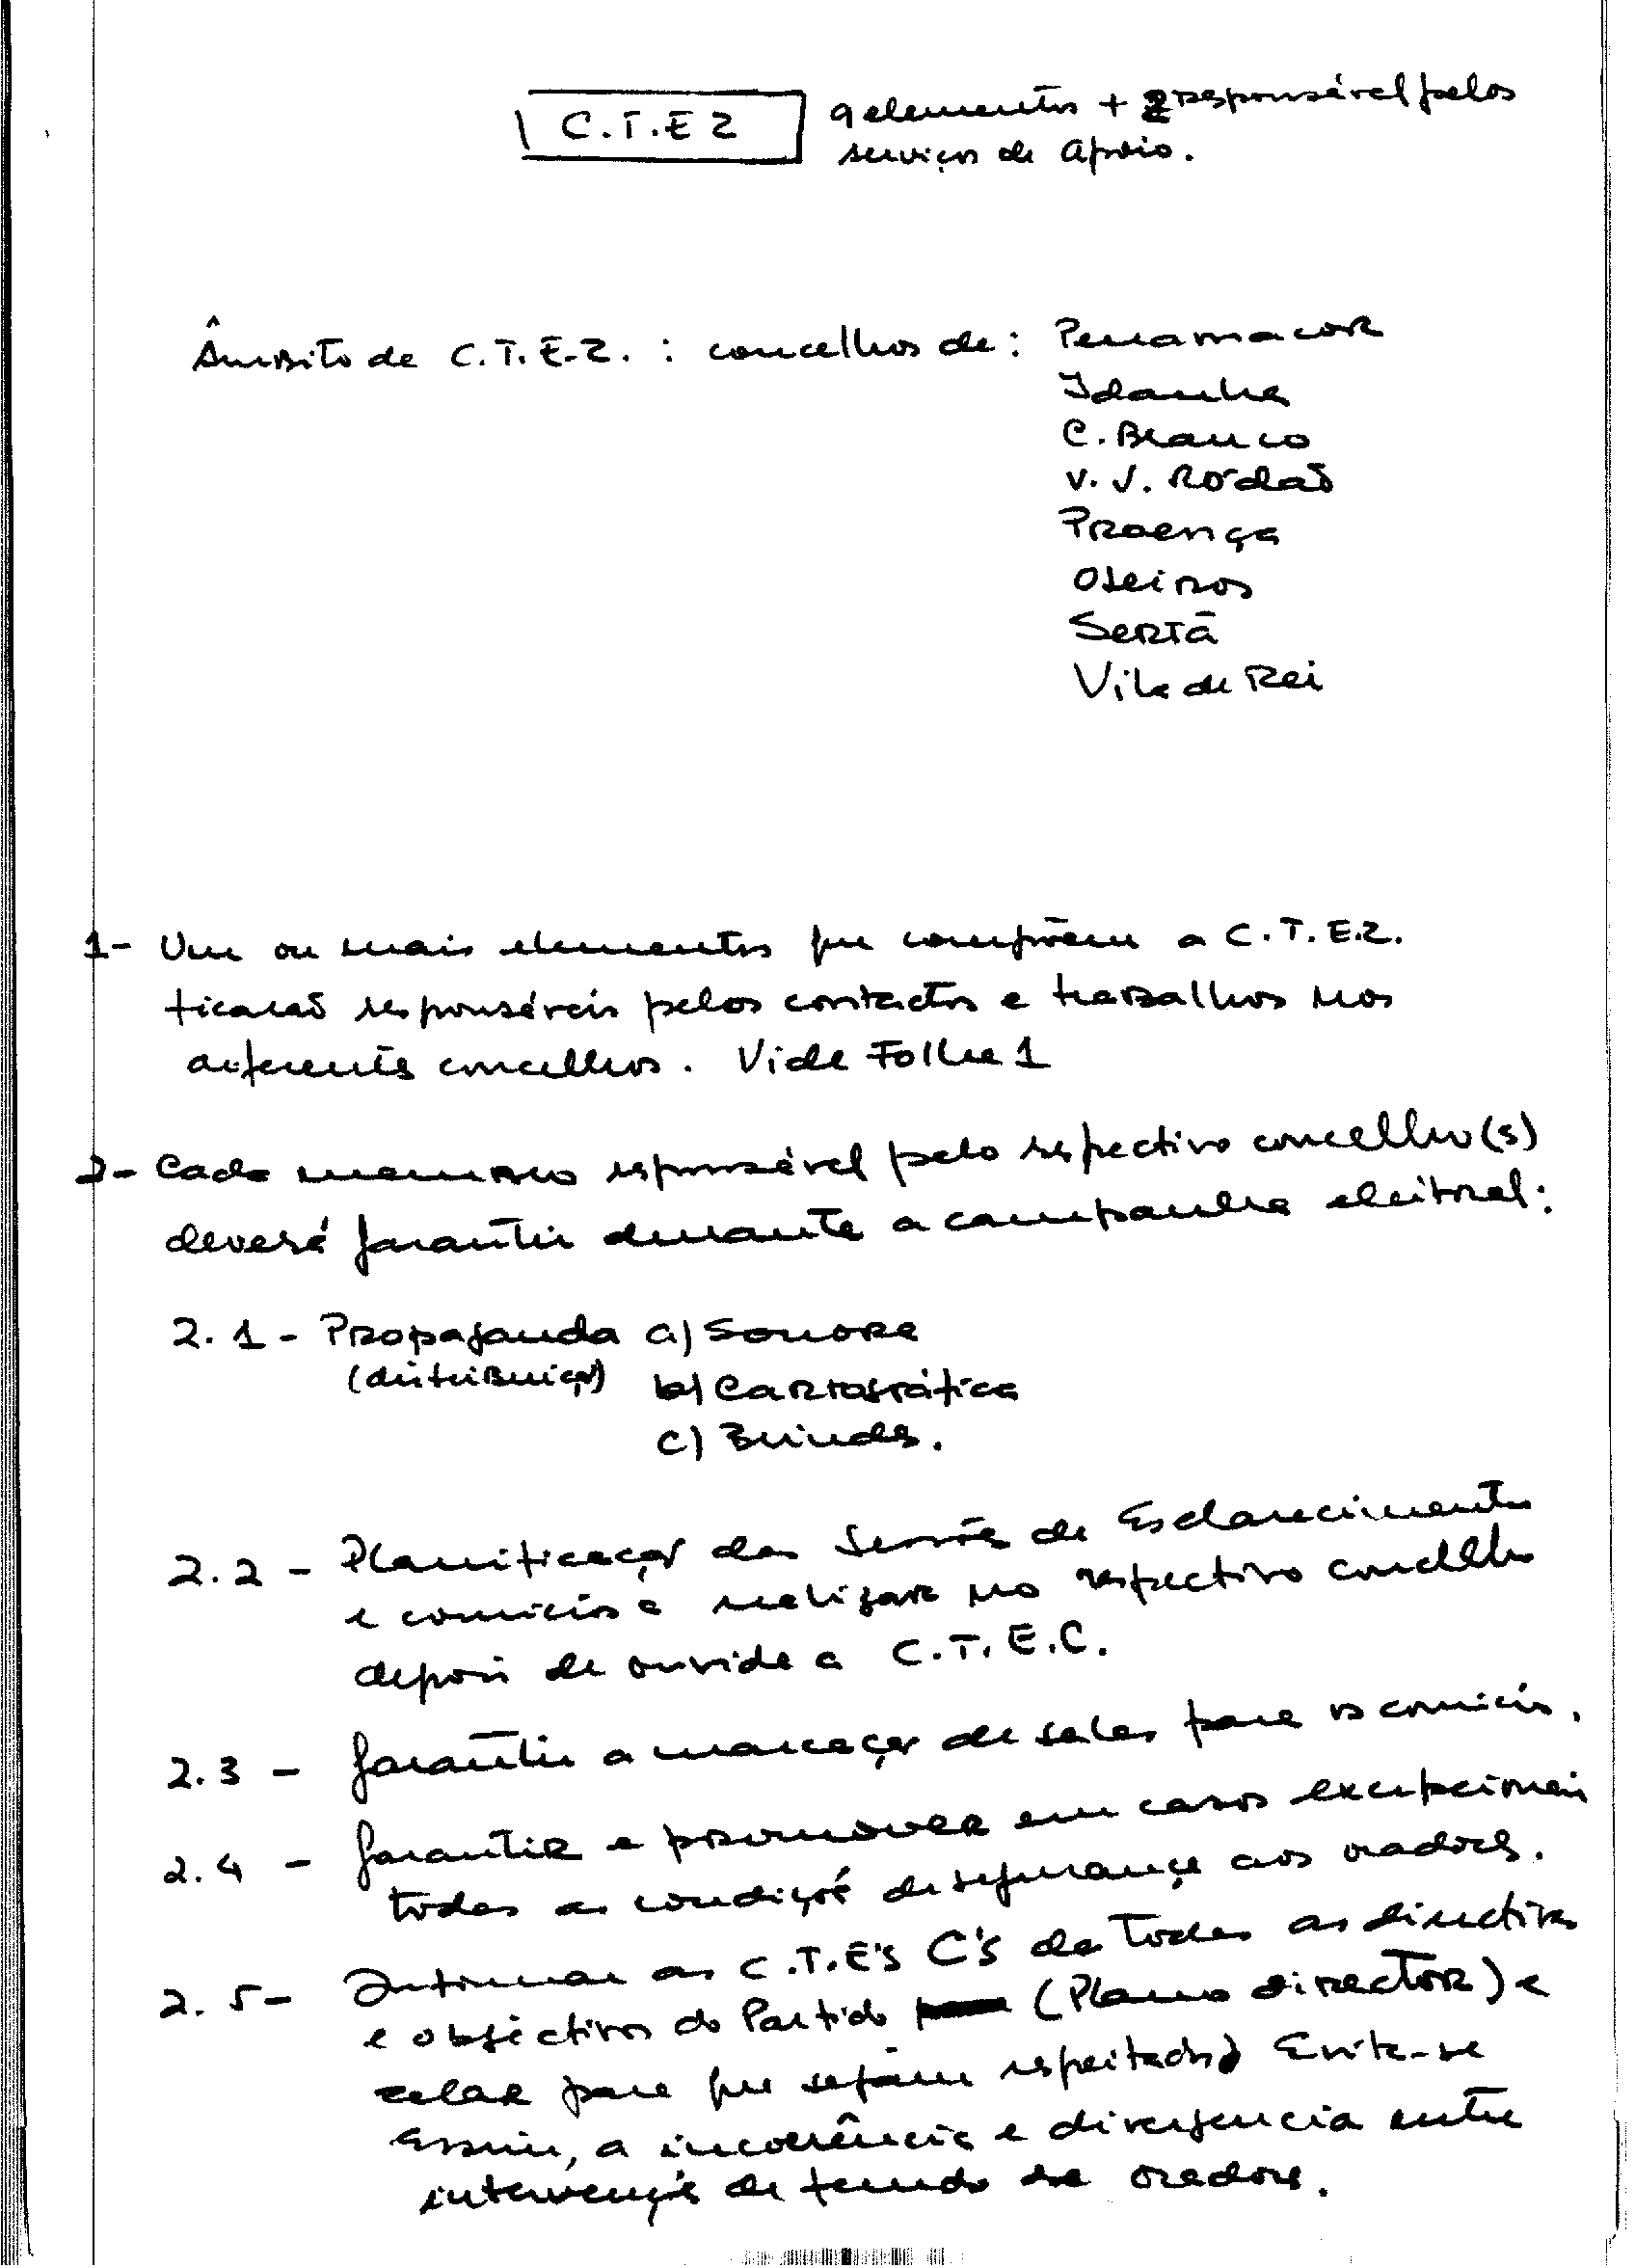 C.T.E Z 9 elementos + 2 responsável pelos
serviços de Apoio.
Âmbito de C.T.E.Z. : concelhos de : Penamacor
Idanha
C. Branco
V. V. Rodão
Proença
Oleiros
Sertã
Vila de Rei
1- Um ou mais elementos que compõem a C.T.E.Z.
ficarão responsáveis pelos contactos e trabalhos nos
diferentes concelhos. Vide Folha 1
2- Cada membro responsável pelo respectivo concelho(s)
deverá garantir durante a campanha eleitoral:
2.1 - Propaganda a) Sonora
(distribuição) b) Cartográfica
c) Brindes.
2.2 - Planificação das Sessões de Esclarecimento
e comícios a realizar no respectivo concelho
depois de ouvida a C.T.E.C.
2.3 - garantir a marcação de salas para os comícios.
2.4 - garantir e promover em casos excepcionais
todas as condições de segurança aos oradores.
2.5 - Informar as C.T.E's C's de todas as directivas
e objectivos do Partido (Plano director) e
zelar para que sejam respeitados Evita-se
assim, a incoerência e divergencia entre
intervenções de fundo de oradores.